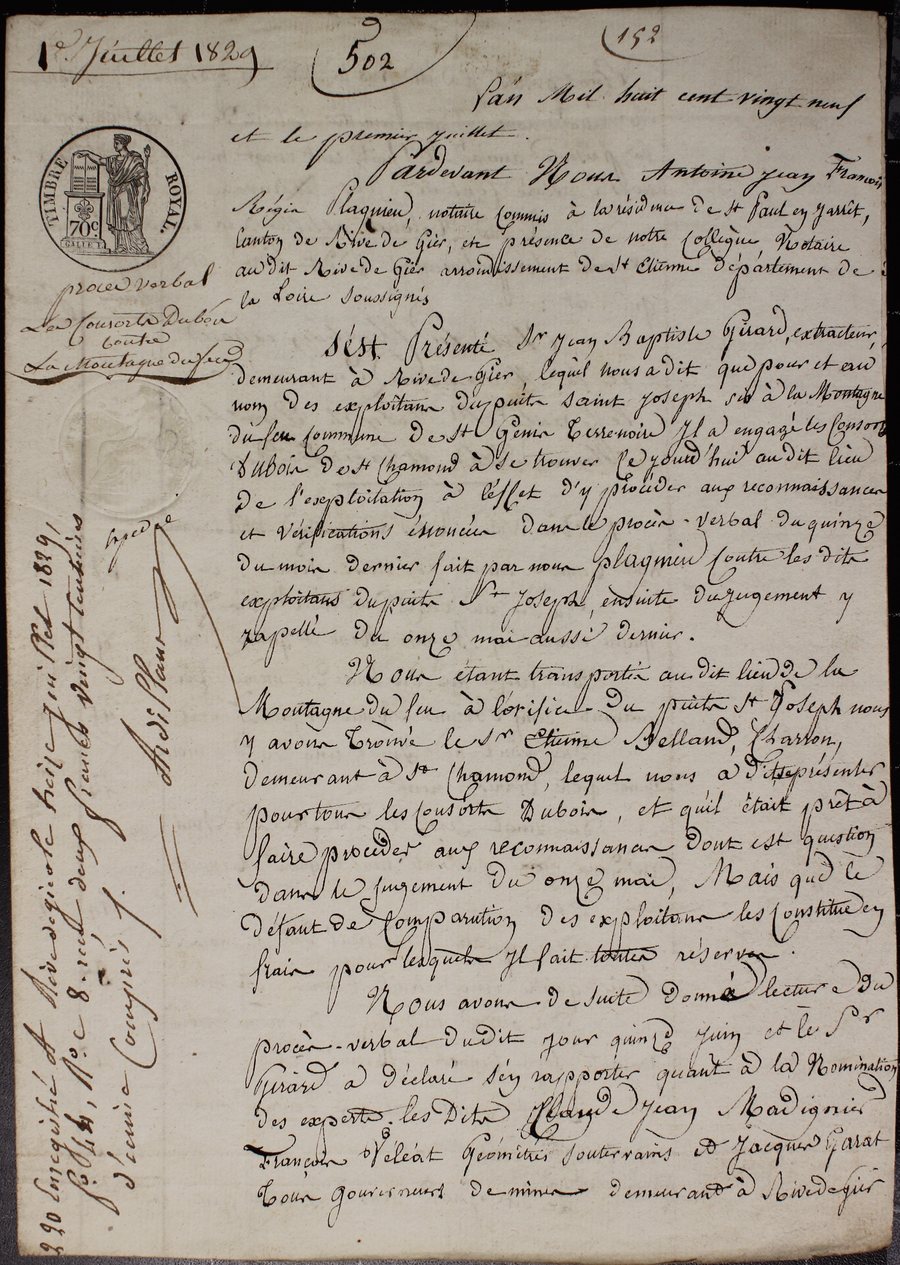 1er Juillet 1829
502
152
L'an Mil huit cent vingt neuf
et le premier juillet.
TIMBRE ROYAL.
70c.
Pardevant Nous Antoine Jean François
Régis Plagnieu, notaire commis à la résidence de St Paul en Jarrêt,
Canton de Rive de Gier, et en présence de notre Collègue Notaire
audit Rive de Gier arrondissement de St Etienne département de
la Loire soussignés
procès verbal
Les Consorts Dubois
contre
La Montagne du feu
S'est Présenté Sr Jean Baptiste Girard, extracteur,
demeurant à Rive de Gier, lequel nous a dit que pour et au
nom des exploitans du puits saint Joseph sis à la Montagne
du feu Commune de St Genis Terrenoire Il a engagé les Consorts
Dubois de St Chamond à se trouver Ce jourd'hui au dit lieu
de l'exploitation à l'effet d'y procéder aux reconnaissances
et Vérifications énoncées dans le procès-verbal du quinze
du mois dernier fait par nous Plagnieu Contre les dits
exploitans du puits St Joseph, ensuite du jugement y
rappellé du onze mai aussi dernier.
Nous étant transportés au dit lieu de la
Montagne du feu à l'orifice du puits St Joseph nous
y avons trouvé le Sr Etienne Belland, Charron,
demeurant à St Chamond, lequel nous a dit représenter
pour tous les Consorts Dubois, et qu'il était prêt à
faire procéder aux reconnaissances dont est question
dans le jugement du onze mai, Mais que le
défaut de Comparution des exploitans les Constitue en
frais pour lesquels Il fait toutes réserves.
Nous avons de suite donné lecture du
procès-verbal dudit jour quinze Juin et le Sr
Girard a déclaré s'en rapporter quant à la Nomination
des experts. les Dits Claude Jean Madignier
François Véléat Géomètres souterrains et Jacques Garat
Tous gouverneurs de mines demeurant à Rive de gier
expédié
220 Enregistré à Rivedegier le treize juillet 1829,
f° 44, R° c 8. reçu deux francs vingt centimes
décime Compris.